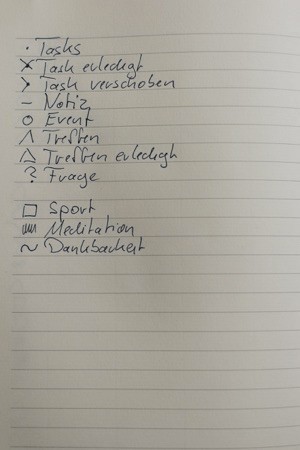 · Tasks
× Task erledigt
> Task verschoben
– Notiz
○ Event
∧ Treffen
△ Treffen erledigt
? Frage
□ Sport
Meditation
~ Dankbarkeit